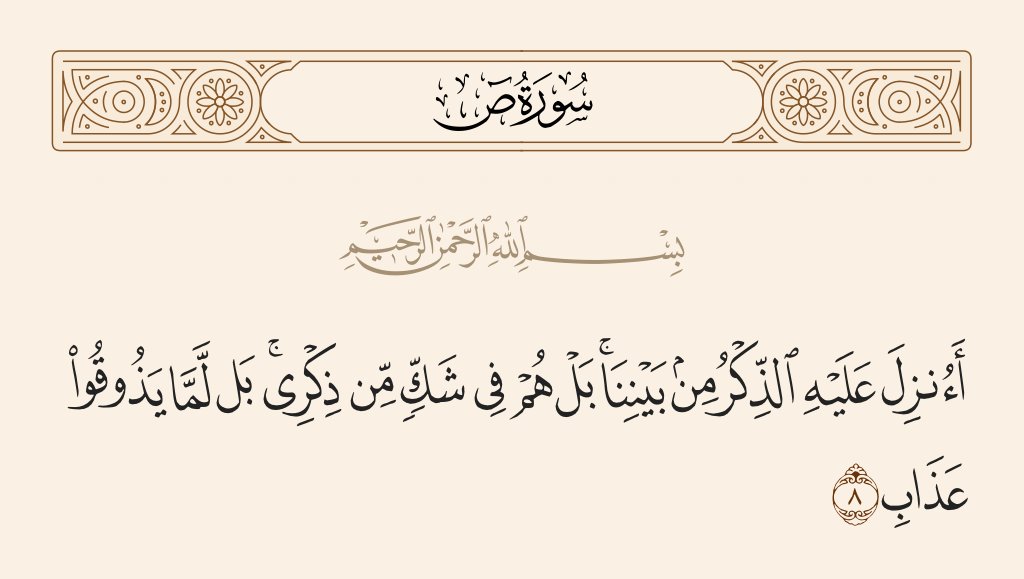 سُورَةُ صٓ
بِسْمِ ٱللَّهِ ٱلرَّحْمَٰنِ ٱلرَّحِيمِ
أَءُنزِلَ عَلَيْهِ ٱلذِّكْرُ مِنۢ بَيْنِنَا ۚ بَلْ هُمْ فِى شَكٍّ مِّن ذِكْرِى ۚ بَل لَّمَّا يَذُوقُوا۟
عَذَابِ ٨